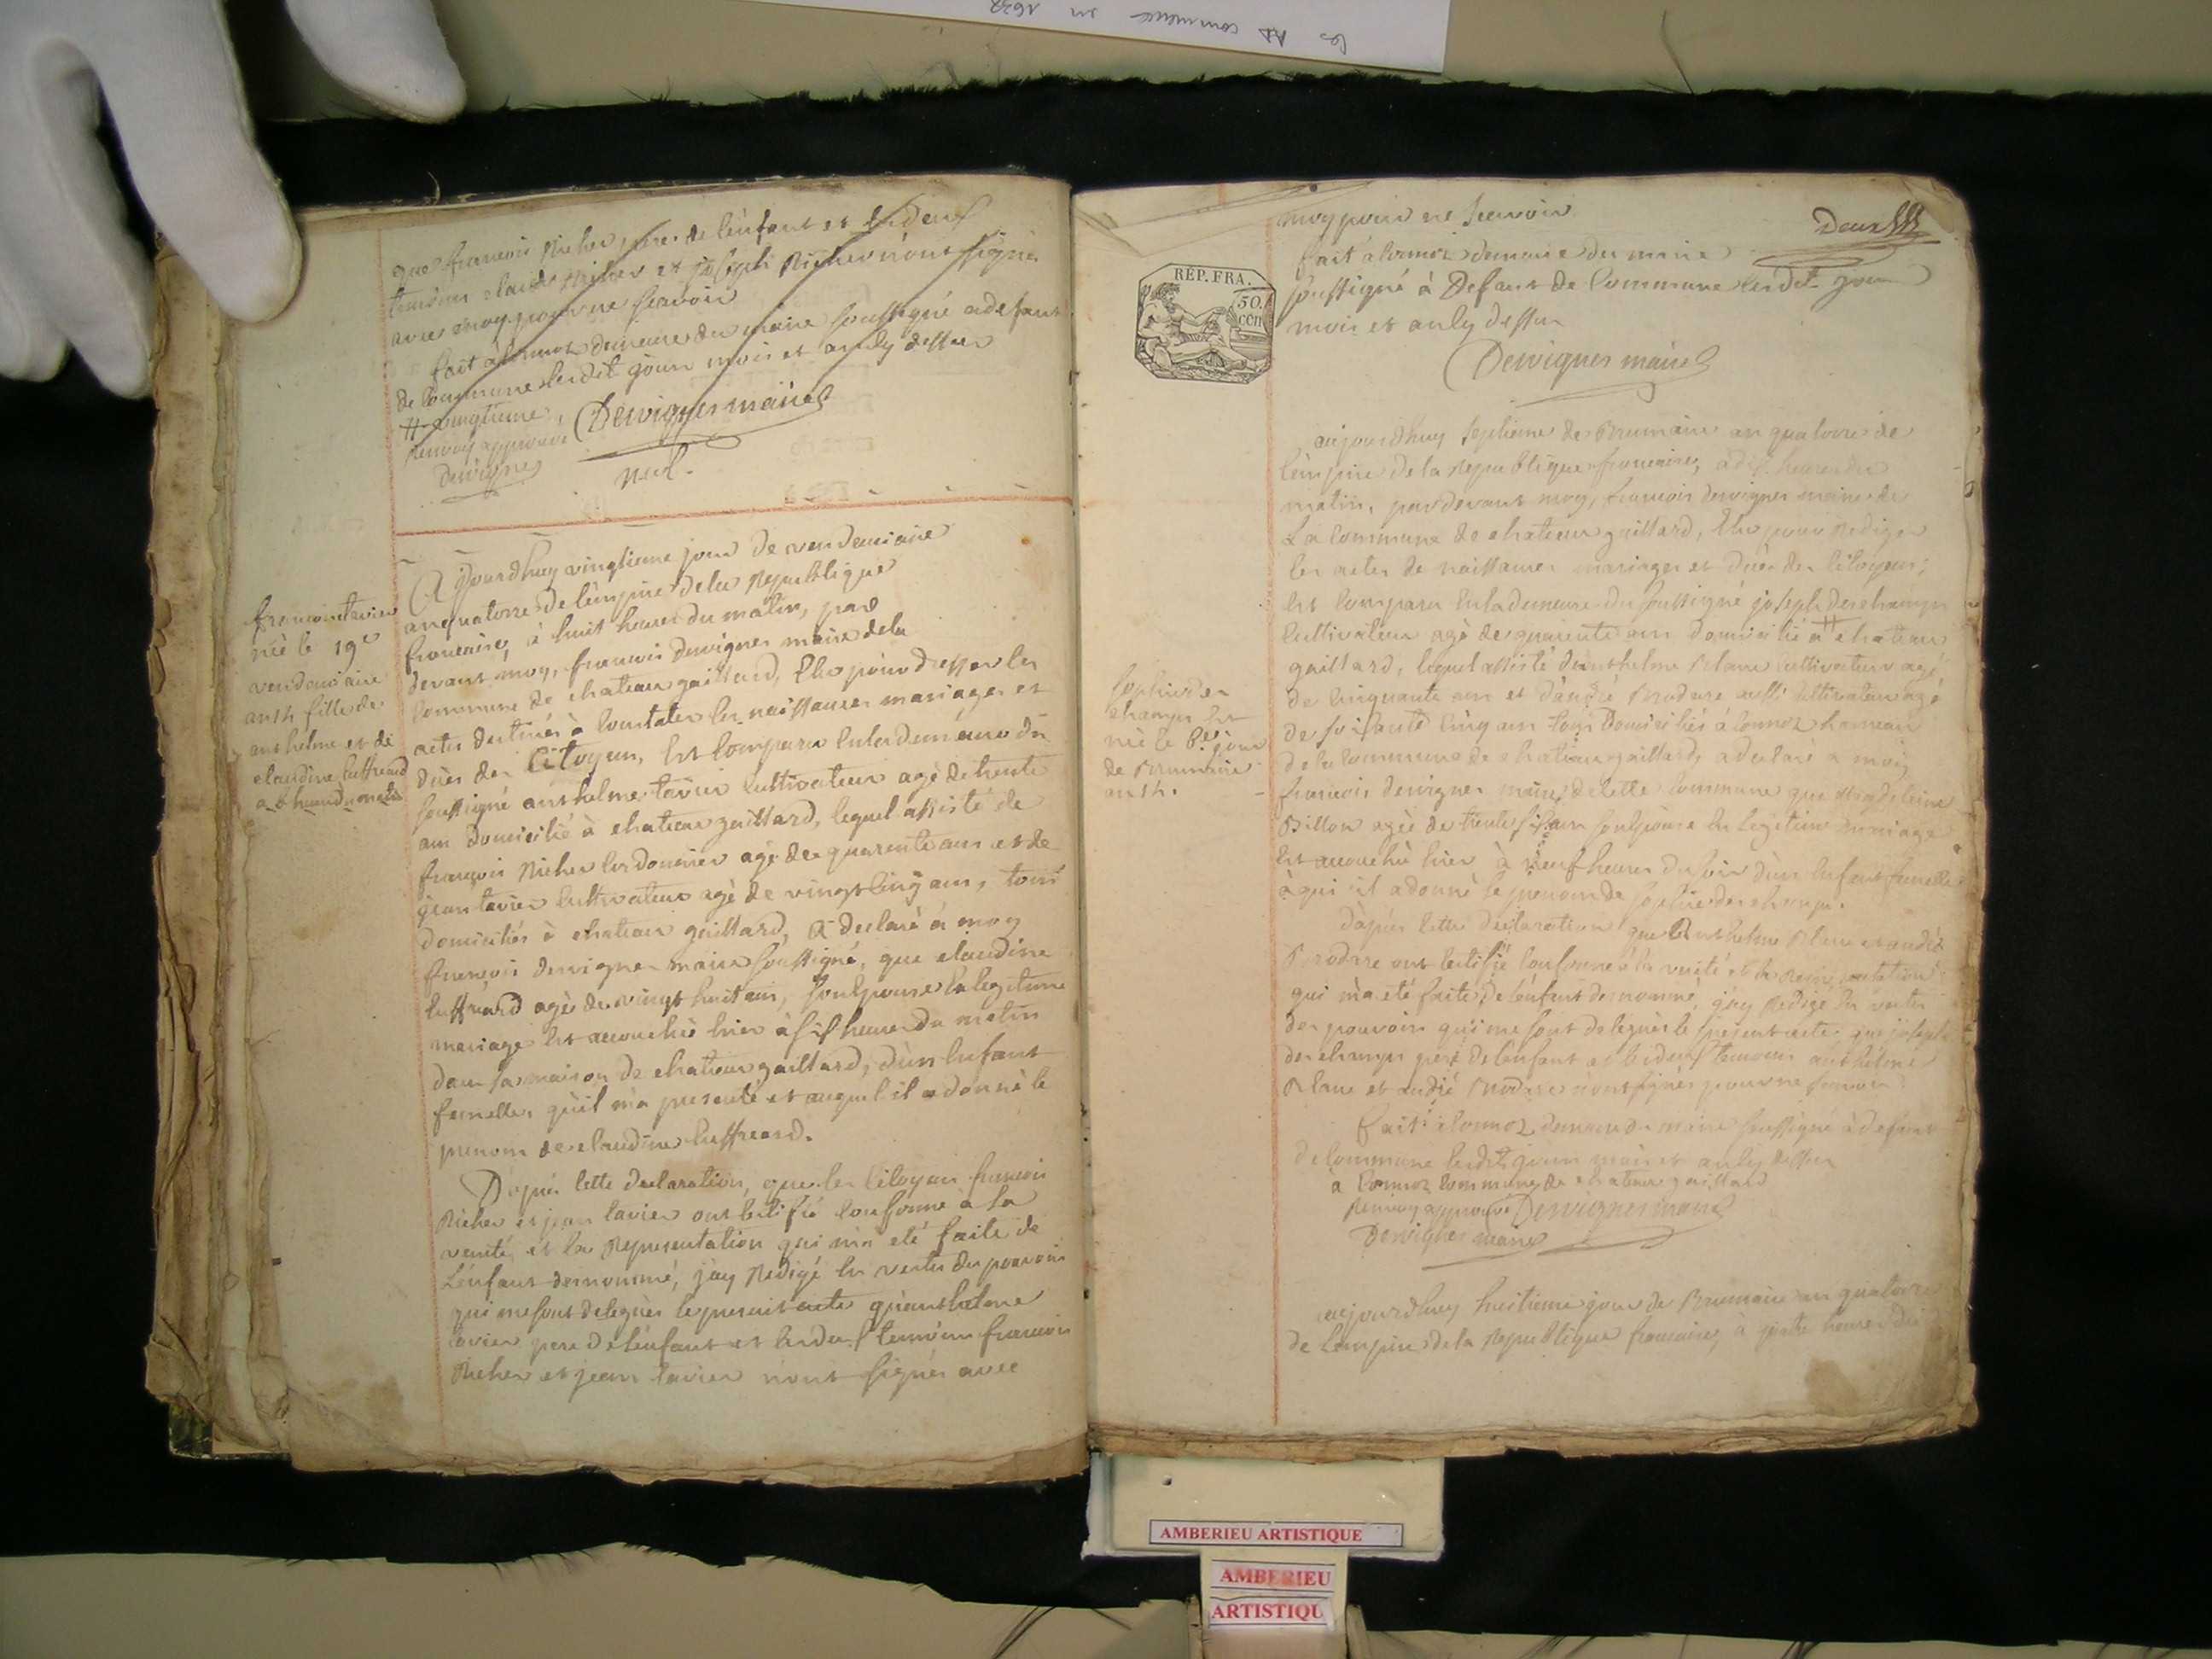 Les AD commence en 1692
que francois Richer, pere de l'enfant et les deux
temoins claude Richer et joseph Richer n'ont signés
avec moy pour ne scavoir
fait a cormoz demeure du maire soussigné a defaut
de commune lesdit jour mois et an cy dessus
# vingtieme
renvoy approuvé Dervignes maire
Dervignes
nul.
Ajjourdhuy vingtieme jour de vendemiaire
an quatorze de l'empire de la Republique
francaise, à huit heures du matin, par
devant moy, francois dervignes maire de la
commune de chateau gaillard, Elu pour dresser les
actes destinés à constater les naissances mariages et
dués des Citoyens, Est comparu en la demeure du
soussigné anthelme tavier cultivateur agé de trente
ans domicilié à chateau gaillard, lequel assisté de
francois Richer cordonnier agé de quarente ans et de
jean tavier cultivateur agé de vingt cinq ans, tous
domiciliés à chateau gaillard, a declaré à moy
francois dervignes maire soussigné, que claudine
cuffreard agée de vingt huit ans, son epouse en legitime
mariage Est accouchée hier à six heures du matin
dans sa maison de chateau gaillard, d'un enfant
femelle, qu'il m'a presenté et auquel il a donné le
prenom de claudine cuffreard.
D'après cette declaration, que les citoyens francois
Richer et jean tavier ont certifié conforme à la
verité, et la Representation qui m'a eté faite de
L'enfant denommé, j'ay Redigé en vertu des pouvoirs
qui me sont delegués le presant acte qu'anthelme
tavier pere de l'enfant et les deux temoins francois
Richer et jean tavier n'ont signés avec
francois tavier
née le 19e
vendemiaire
an 14 fille de
anthelme et de
claudine cuffreard
moy pour ne scavoir
Deux
fait a cormoz demeure du maire
soussigné à Defaut de Commune lesdit jour
mois et an cy dessus
Dervignes maire
RÉP. FRA.
50.
cen
aujourdhuy septieme de Brumaire an quatorze de
l'empire de la Republique francaise, à dix heures du
matin, pardevant moy, francois dervignes maire de
La Commune de chateau gaillard, Elu pour Rediger
les actes de naissances mariages et dués des citoyens;
Est comparu en la demeure du soussigné joseph deschamps
cultivateur agé de quarente ans domicilié a # chateau
gaillard, lequel assisté d'anthelme Blanc cultivateur agé
de cinquante ans et d'andré Brodare aussi cultivateur agé
de soixante cinq ans tous Domiciliés à cormoz hameau
de la commune de chateau gaillard, a declaré à moy
francois dervignes maire de cette commune que Magdeleine
Billon agée de trente six ans son epouse en legitime mariage
Est accouchée hier à neuf heures du soir d'un enfant femelle
à qui il a donné le prenom de sophie deschamps.
d'après cette declaration que Anthelme Blanc et andré
Brodare ont certifié conforme à la verité et la Representation
qui m'a eté faite de l'enfant denommé, j'ay Redigé en vertu
des pouvoirs qui me sont delegués le present acte que joseph
deschamps pere de l'enfant et les deux temoins anthelme
Blanc et andré Brodare n'ont signés pour ne scavoir
fait à cormoz demeure du maire soussigné à defaut
de commune lesdit jour mois et an cy dessus
à Cormoz commune de chateau gaillard
Renvoy approuvé Dervignes maire
Dervignes maire
sophie des
champs est
née le 6e jour
de Brumaire
an 14.
aujourdhuy huitieme jour de Brumaire an quatorze
de l'empire de la Republique francaise, à quatre heures du
AMBERIEU ARTISTIQUE
AMBERIEU
ARTISTIQU